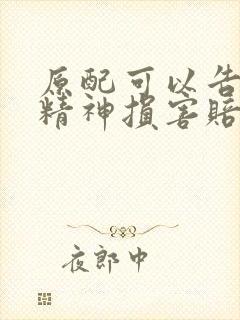 原配可以告
精神损害赔
夜郎中